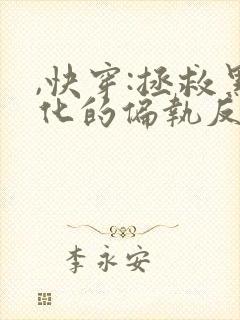 ,快穿:拯救黑
化的偏執反
李永安